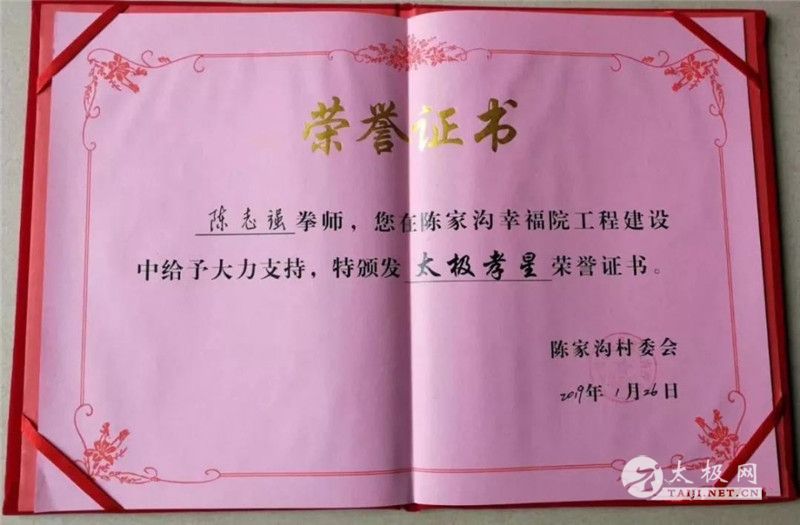 荣誉证书
陈志强拳师，您在陈家沟幸福院工程建设
中给予大力支持，特颁发太极孝星荣誉证书。
陈家沟村委会
2019年1月26日
太极网
TAIJI.NET.CN